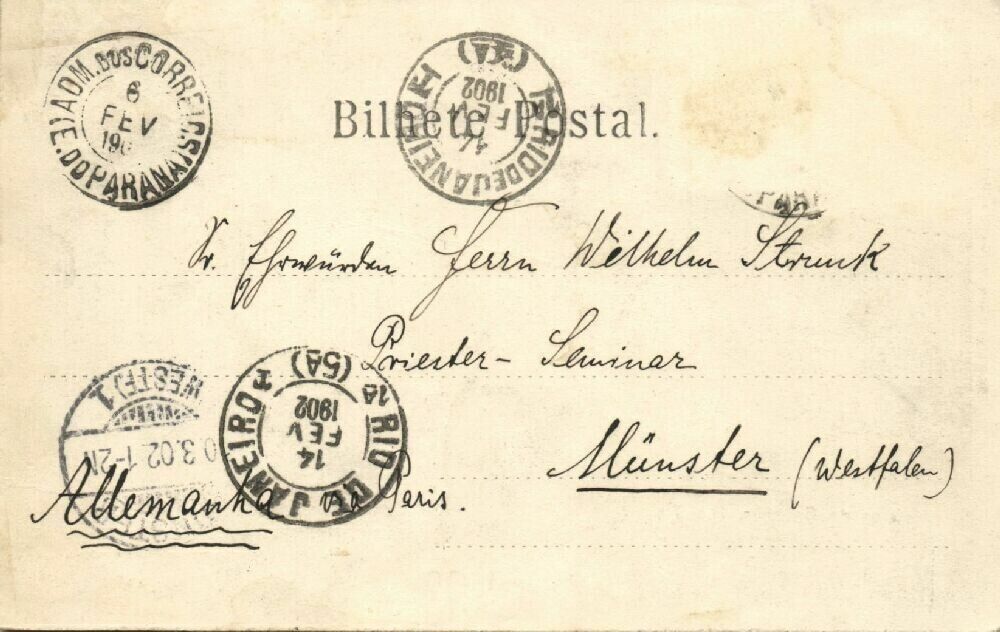 ADM. DOS CORREIOS (E. DO PARANÁ)
6
FEV
190
RIO DE JANEIRO
(5A)
14
FEV
1902
Bilhete Postal.
PARA
Sr. Ehrwürden Herrn Wilhelm Strunk
Priester-Seminar
Münster (Westfalen)
Allemanha via Paris.
RIO DE JANEIRO
(5A)
14
FEV
1902
(WESTF) 1
0 3.02 1-2N